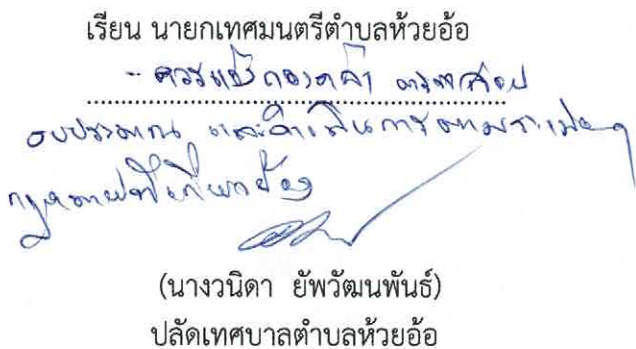 เรียน นายกเทศมนตรีตำบลห้วยอ้อ
- ควรแจ้งกองคลัง ตรวจสอบ
งบประมาณ และดำเนินการตามระเบียบฯ
กฎหมายที่เกี่ยวข้อง
(นางวนิดา ยัพวัฒนพันธ์)
ปลัดเทศบาลตำบลห้วยอ้อ